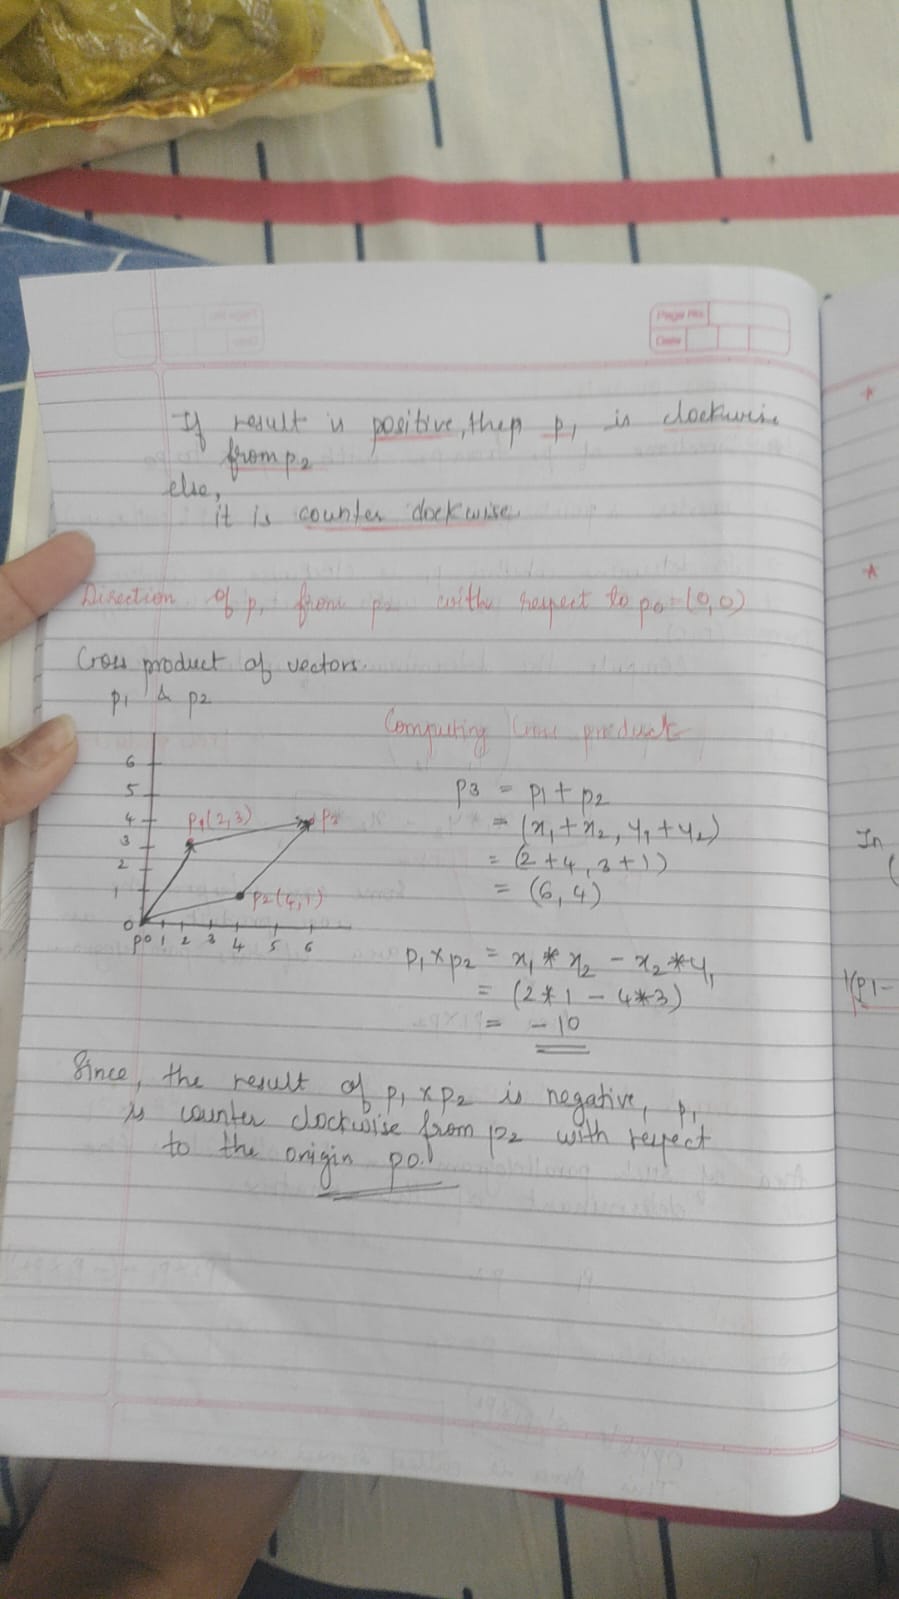 Page No.
Date
If result is positive, then p1 is clockwise
from p2
else,
it is counter clockwise.
Direction of p1 from p2 with respect to p0=(0,0)
Cross product of vectors.
p1 & p2
Computing Cross product
p3 = p1 + p2
= (x1 + x2, y1 + y2)
= (2+4, 3+1)
= (6, 4)
6
5
4
3
2
1
0
p1(2,3)
p3
p2(4,1)
p0 1 2 3 4 5 6
p1 × p2 = x1 * x2 - x2 * y1
= (2*1 - 4*3)
= -10
Since, the result of p1 × p2 is negative, p1
is counter clockwise from p2 with respect
to the origin p0.
In
(
(p1-